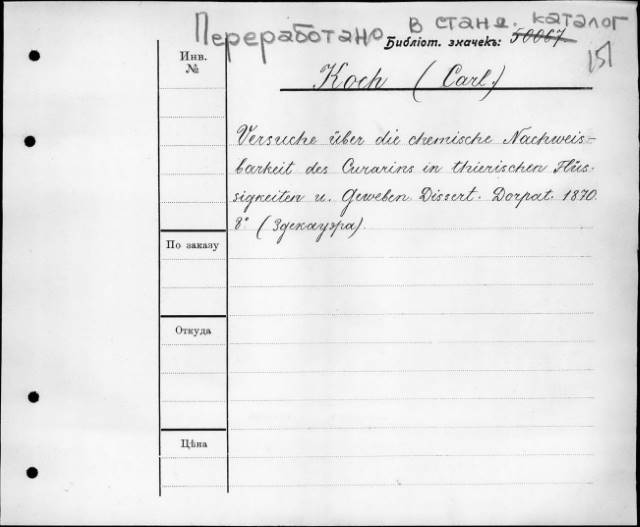 Переработано в станд. каталог
Инв.
№
Библіот. значекъ: 50067
151
Koch (Carl)
Versuche über die chemische Nachweis-
barkeit des Curarins in thierischen Flüs-
sigkeiten u. Geweben. Dissert. Dorpat. 1870.
8° (Здекауэра).
По заказу
Откуда
Цѣна